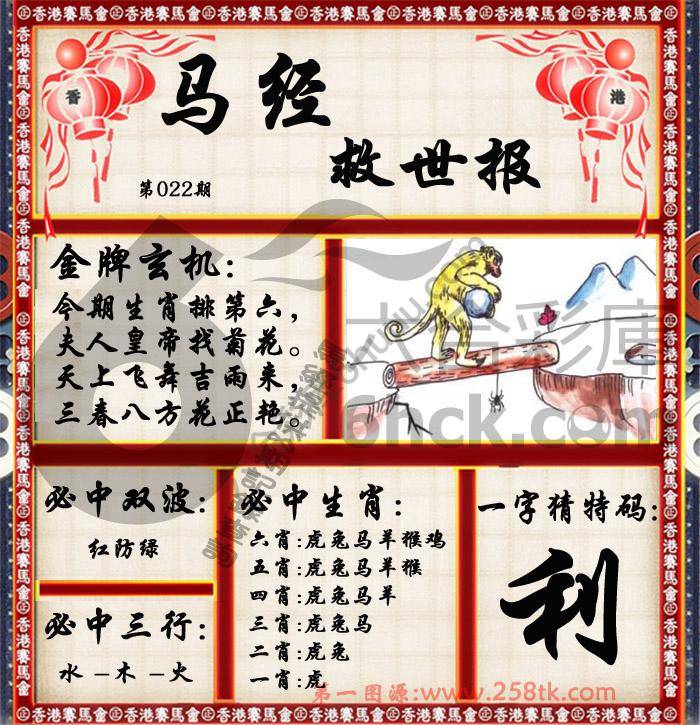 香港賽馬會
香 港
马经
救世报
第022期
金牌玄机:
今期生肖排第六,
夫人皇帝找菊花。
天上飞舞吉雨来,
三春八方花正艳。
六合彩庫
6hck.com
必中双波:
红防绿
必中三行:
水–木–火
必中生肖:
六肖:虎兔马羊猴鸡
五肖:虎兔马羊猴
四肖:虎兔马羊
三肖:虎兔马
二肖:虎兔
一肖:虎
一字猜特码:
利
第一图源:www.258tk.com